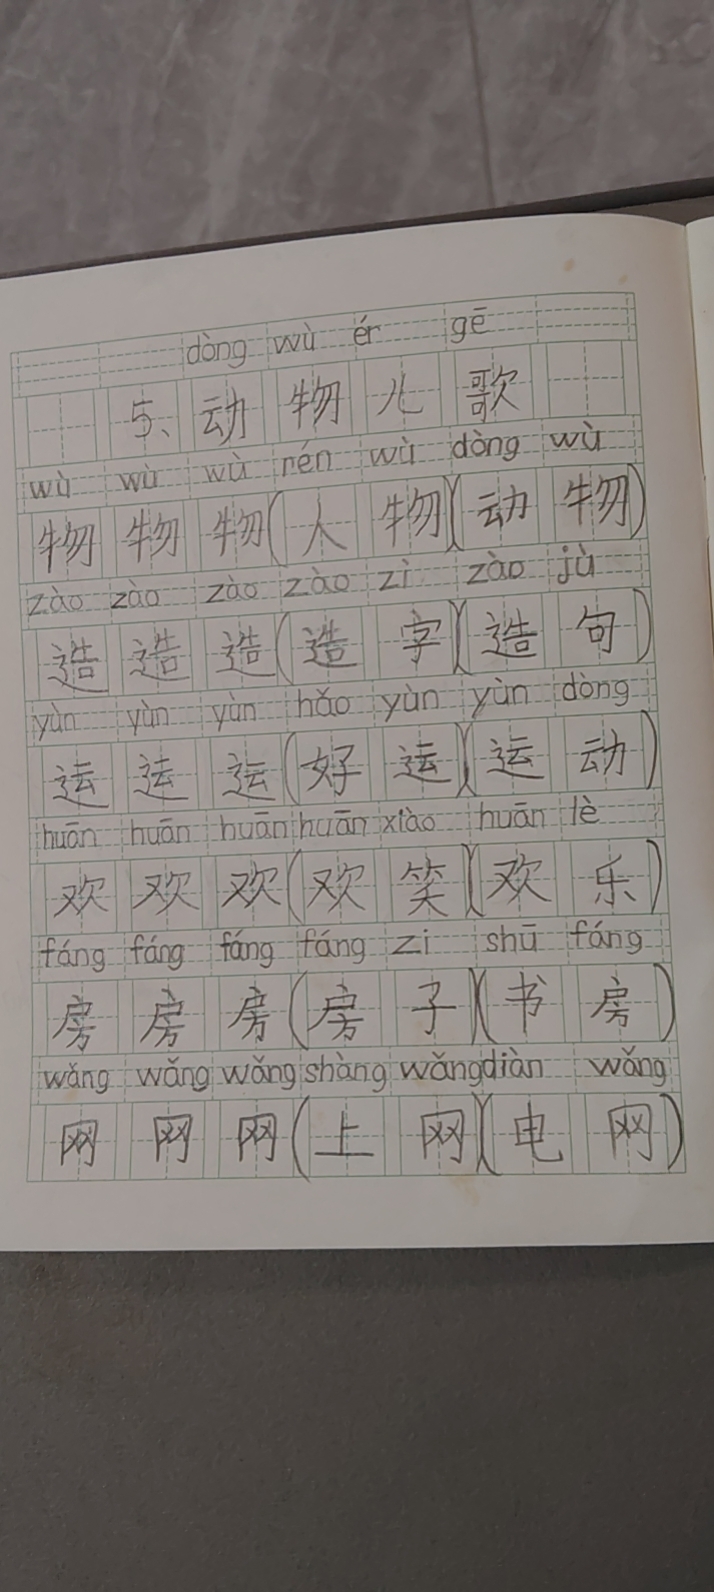 dòng wù ér gē
5、动物儿歌
wù wù wù rén wù dòng wù
物物物(人物)(动物)
zào zào zào zào zì zào jù
造造造(造字)(造句)
yùn yùn yùn hǎo yùn yùn dòng
运运运(好运)(运动)
huān huān huān huān xiào huān lè
欢欢欢(欢笑)(欢乐)
fáng fáng fáng fáng zi shū fáng
房房房(房子)(书房)
wǎng wǎng wǎng shàng wǎng diàn wǎng
网网网(上网)(电网)